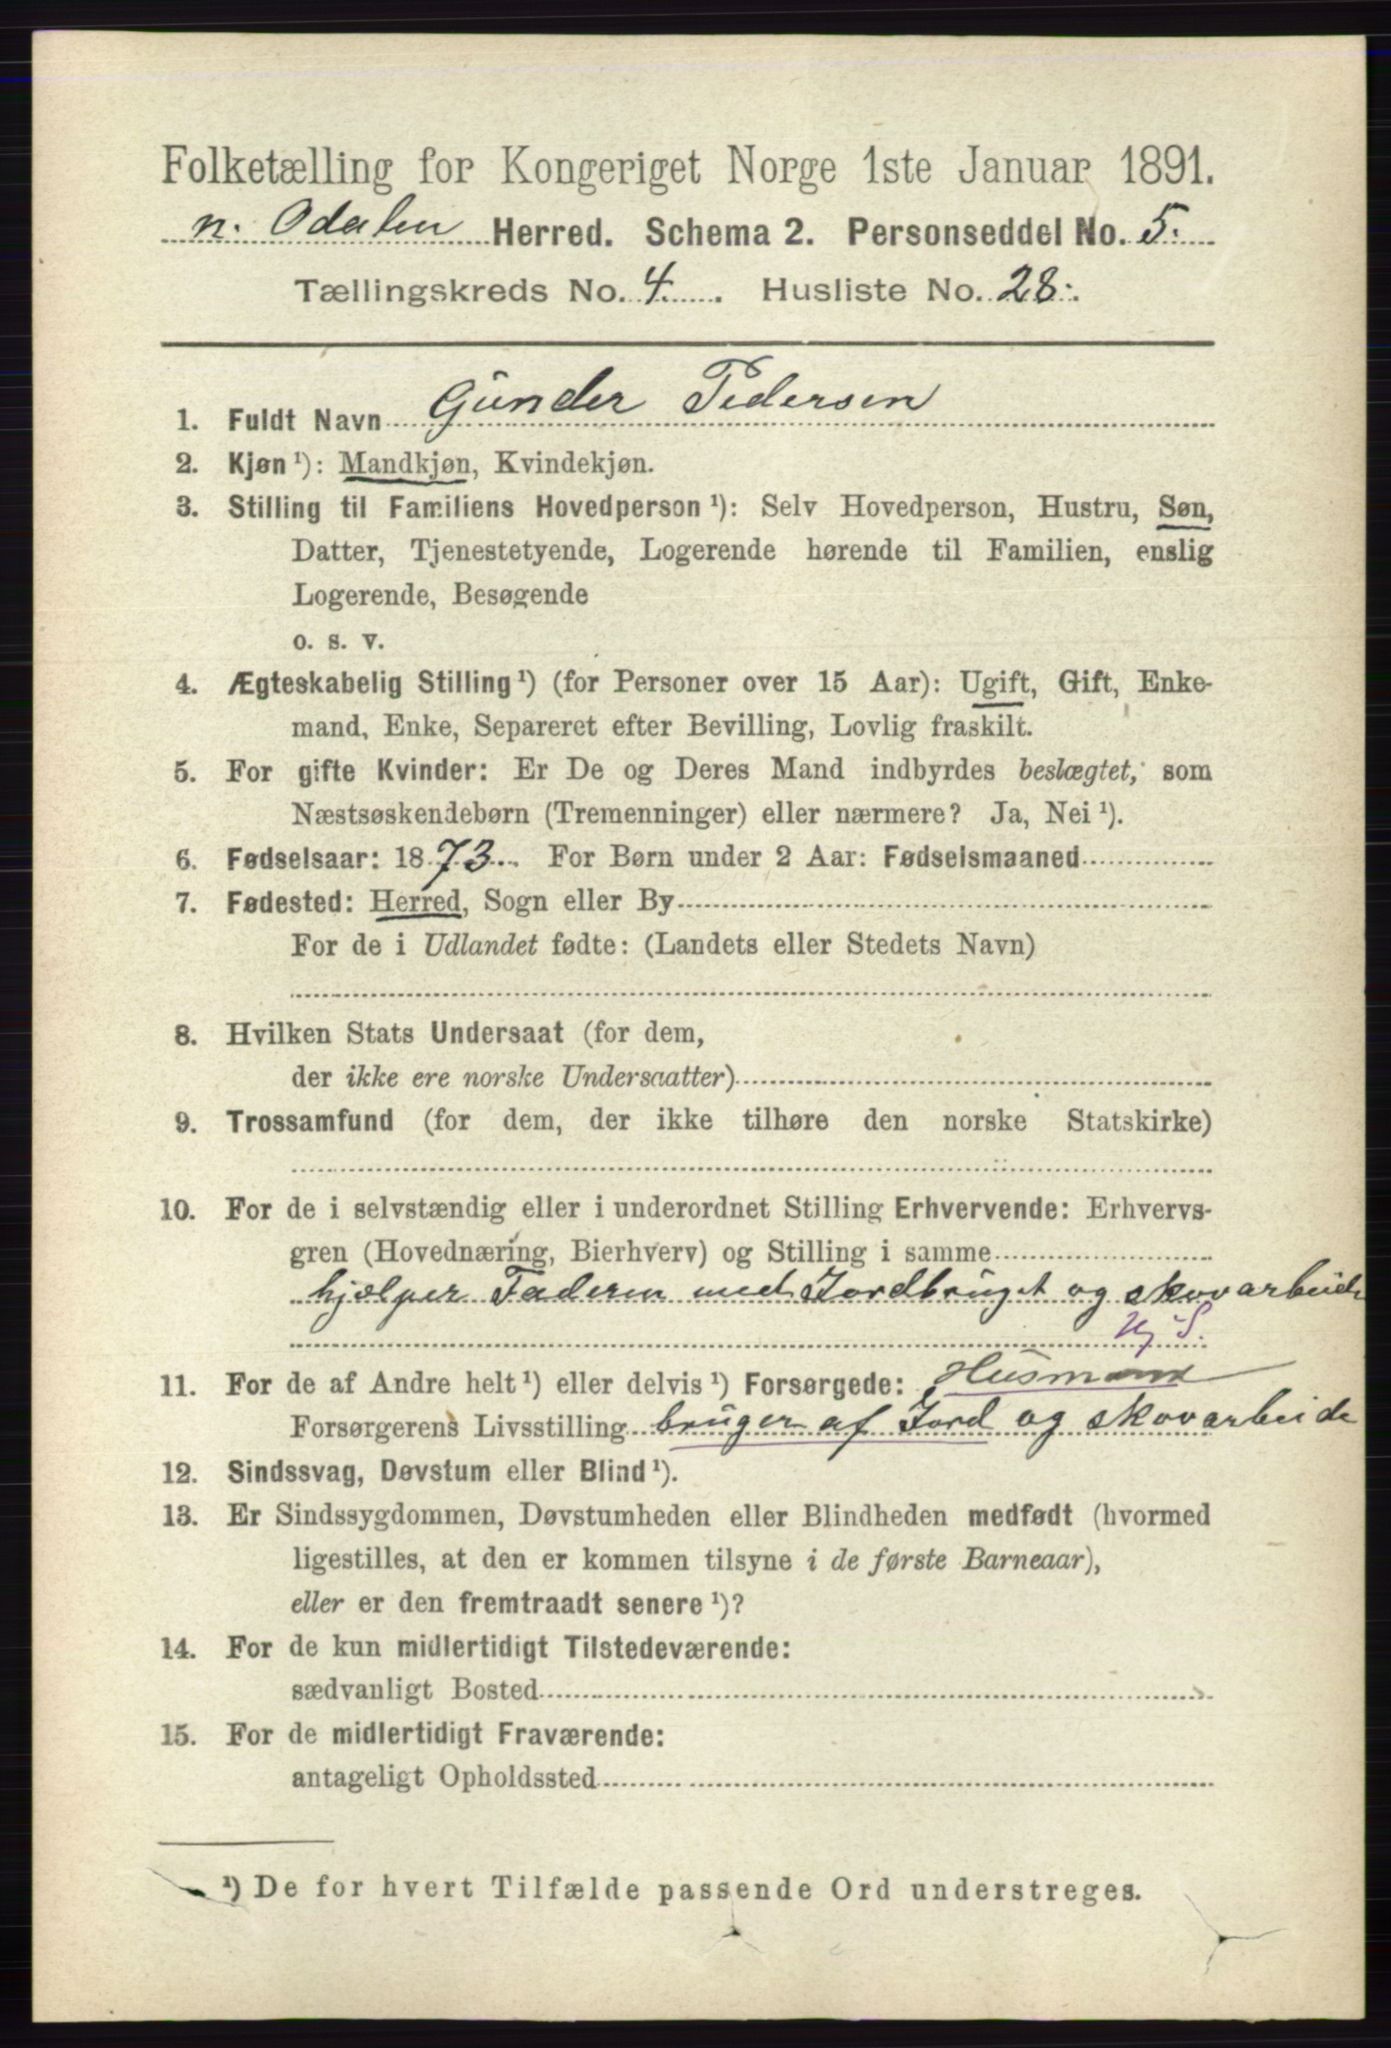 Folketælling for Kongeriget Norge 1ste Januar 1891.
n. Odalen Herred. Schema 2. Personseddel No. 5.
Tællingskreds No. 4. Husliste No. 28.
1. Fuldt Navn Gunder Pedersen
2. Kjøn ¹): Mandkjøn, Kvindekjøn.
3. Stilling til Familiens Hovedperson ¹): Selv Hovedperson, Hustru, Søn,
Datter, Tjenestetyende, Logerende hørende til Familien, enslig
Logerende, Besøgende
o. s. v.
4. Ægteskabelig Stilling ¹) (for Personer over 15 Aar): Ugift, Gift, Enke-
mand, Enke, Separeret efter Bevilling, Lovlig fraskilt.
5. For gifte Kvinder: Er De og Deres Mand indbyrdes beslægtet, som
Næstsøskendebørn (Tremenninger) eller nærmere? Ja, Nei ¹).
6. Fødselsaar: 1873. For Børn under 2 Aar: Fødselsmaaned
7. Fødested: Herred, Sogn eller By
For de i Udlandet fødte: (Landets eller Stedets Navn)
8. Hvilken Stats Undersaat (for dem,
der ikke ere norske Undersaatter)
9. Trossamfund (for dem, der ikke tilhøre den norske Statskirke)
10. For de i selvstændig eller i underordnet Stilling Erhvervende: Erhvervs-
gren (Hovednæring, Bierhverv) og Stilling i samme
hjælper Faderen med Jordbruget og skovarbeide
11. For de af Andre helt ¹) eller delvis ¹) Forsørgede: Husmand
Forsørgerens Livsstilling bruger af Jord og skovarbeide
12. Sindssvag, Døvstum eller Blind ¹).
13. Er Sindssygdommen, Døvstumheden eller Blindheden medfødt (hvormed
ligestilles, at den er kommen tilsyne i de første Barneaar),
eller er den fremtraadt senere ¹)?
14. For de kun midlertidigt Tilstedeværende:
sædvanligt Bosted
15. For de midlertidigt Fraværende:
antageligt Opholdssted
¹) De for hvert Tilfælde passende Ord understreges.